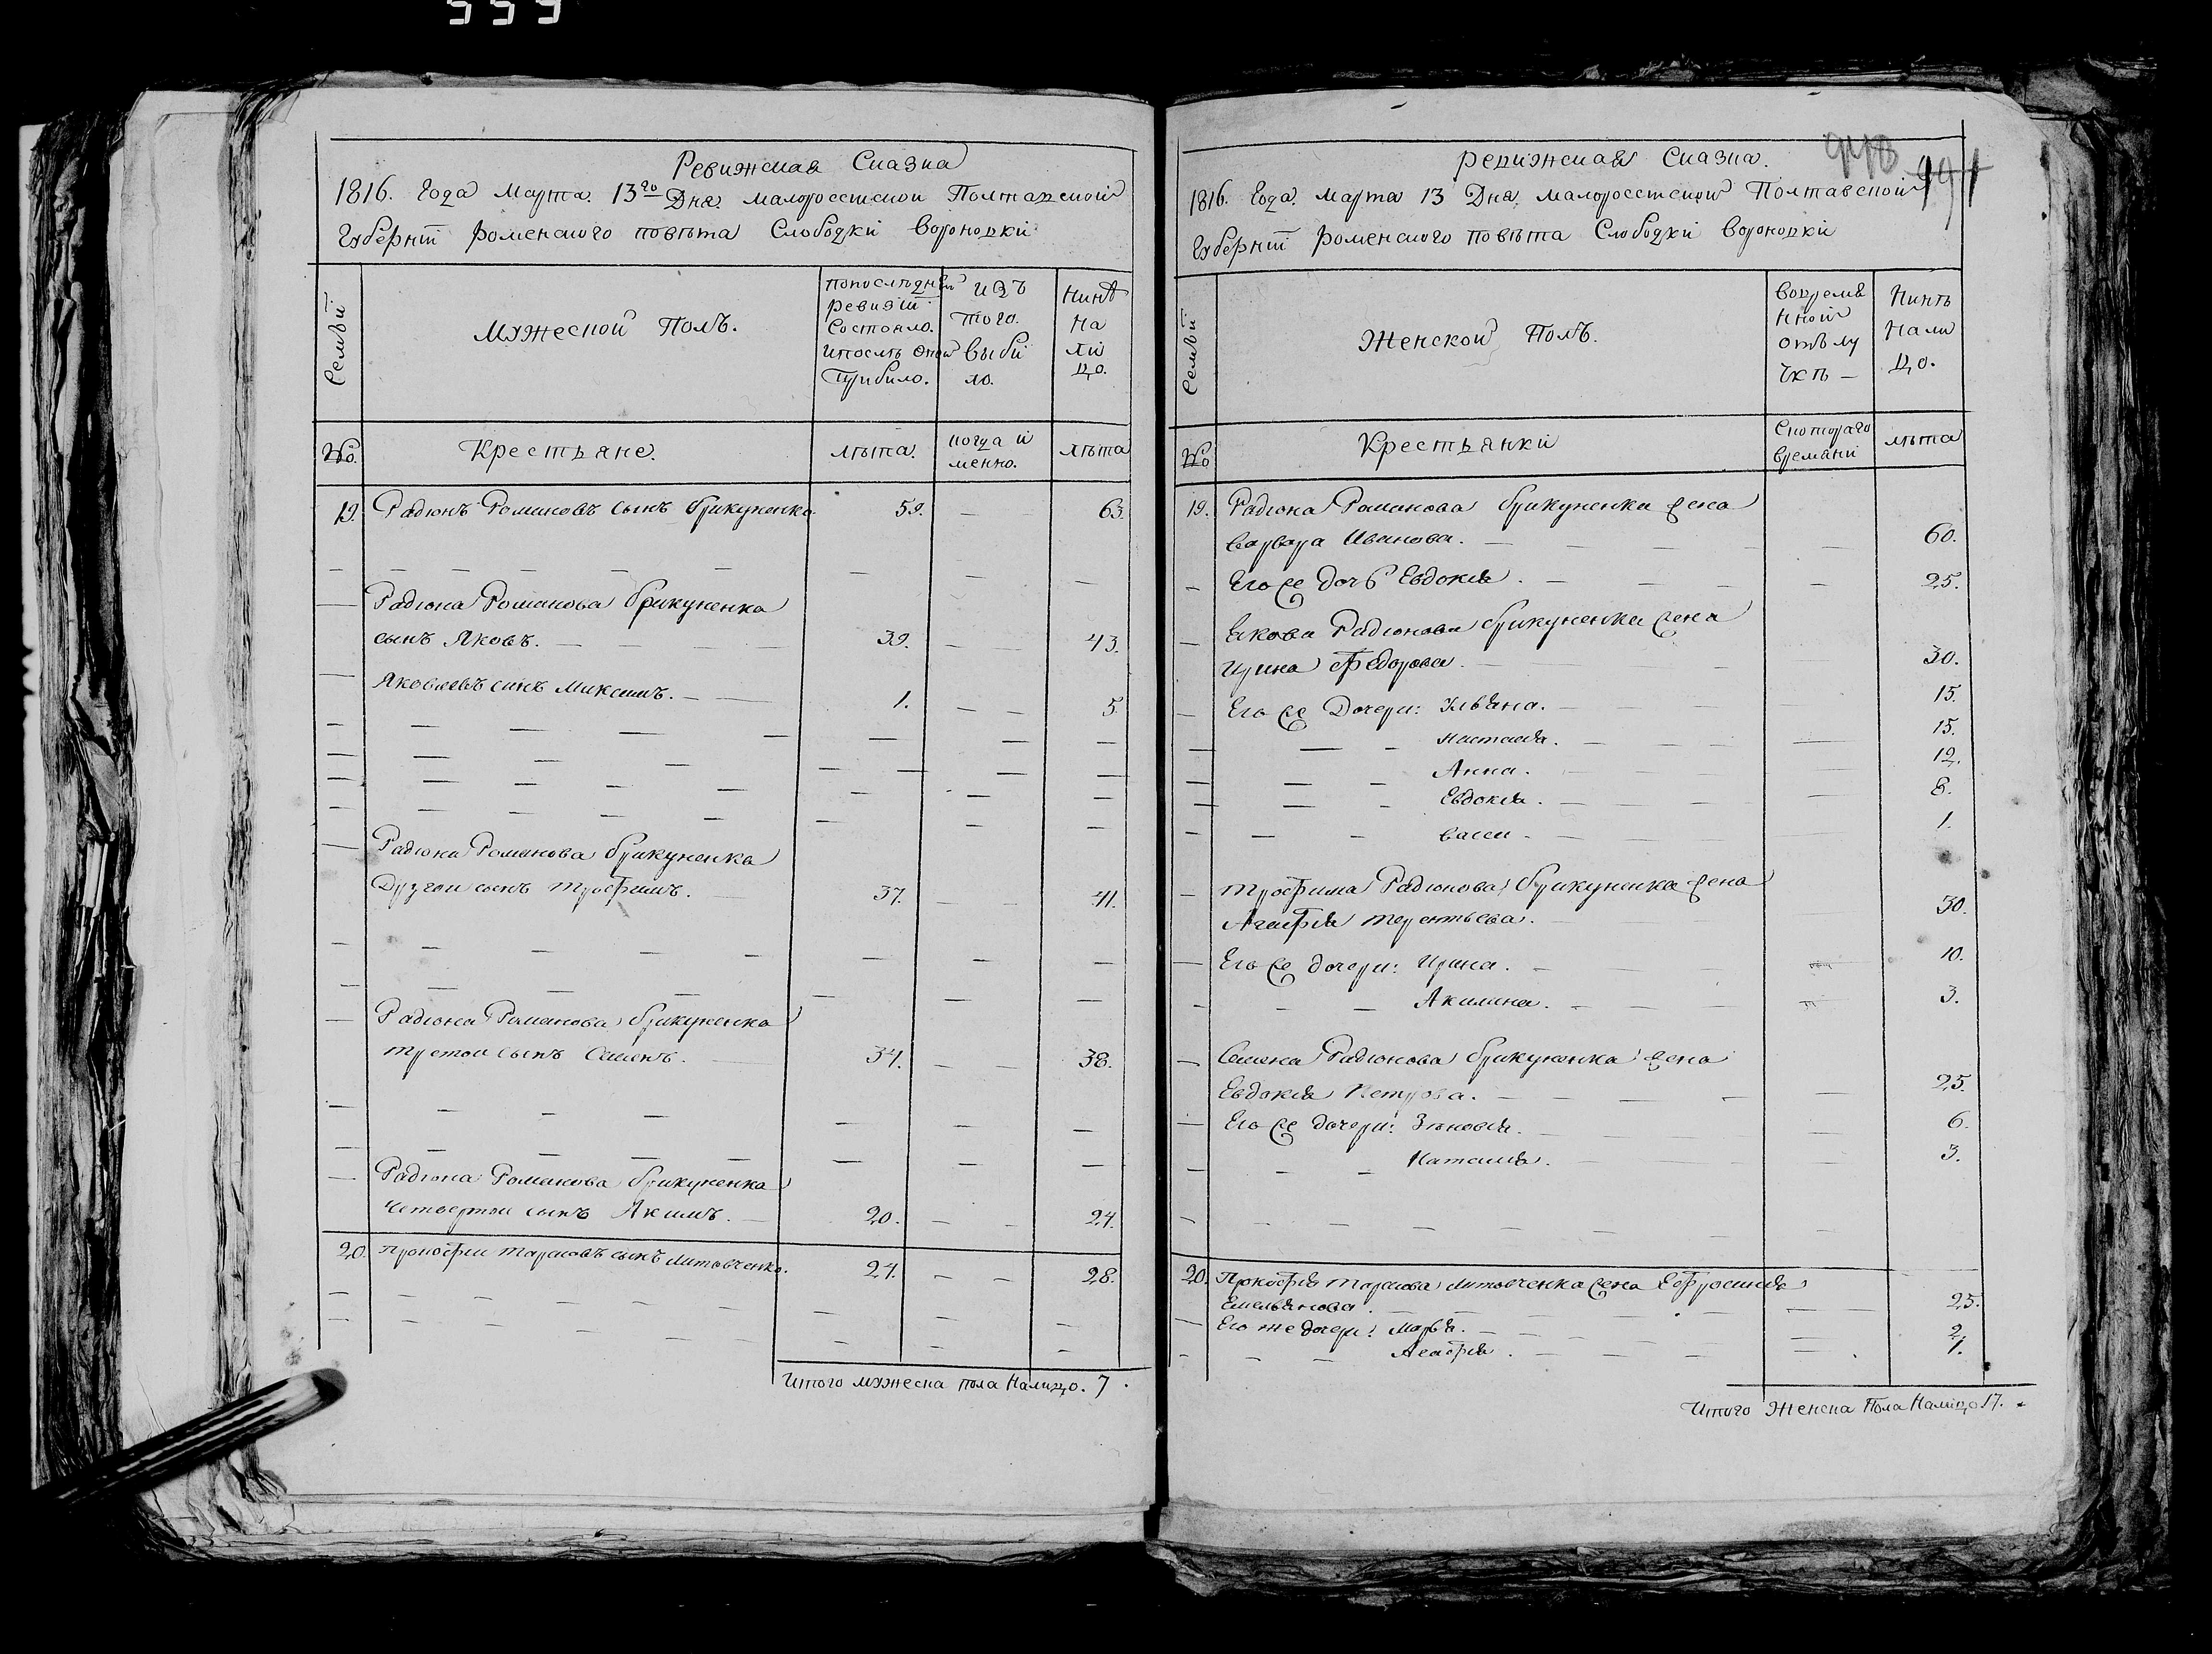 555
Ревижская Сказка
1816. Года Марта. 13го Дня. малоросстской Полтавской
Губернїї роменского повѣта Слободки вороновки
Семьи
Мужеской Полъ.
попослѣдней ревизїї Состояло. ипослѣ оной Прибило.
изъ того. выбило.
Нинѣ на лицо.
№.
Крестьяне.
лѣта.
когда именно.
лѣта
19. Радіонъ Романовъ сынъ брикуненко. 59. — 63.
— Радіона Романова брикуненка
сынъ Яковъ. — 39. — 43.
— Яковлевъ синъ Максимъ. — 1. — 5.
— Радіона Романова брикуненка
Другои сынъ трофимъ. 37. — 41.
— Радіона Романова брикуненка
третои сынъ Семенъ. 34. — 38.
— Радіона Романова брикуненка
Четвертои сынъ Акимъ. — 20. — 24.
20. прокофии тарасовъ сынъ литовченко. 24. — 28.
Итого мужеска пола Налицо. 7.
ревижская Сказка.
1816. Года. Марта 13 Дня. малоросстской Полтавской
Губернїї роменского повѣта Слободки вороновки
Семьи
Женской Полъ.
вовремянной отълучкѣ —
Нинѣ Налицо.
№
Крестьянки
Скоторого времани
лѣта
19. Радіона Романова брикуненка жена
варвара Иванова. — 60.
— Его же дочь Евдокія. — 25.
— Якова Радіонова брикуненка жена
Ирина Федорова. — 30.
— Его же Дочери: Ульяна. — 15.
— Настасія. — 15.
— Анна. — 12.
— Евдокія. — 8.
— васса. — 1.
— трофима Радіонова брикуненка жена
Агафія терентьева. — 30.
— Его же дочери: Ирина. — 10.
— Акилина. — 3.
— Семена Радіонова брикуненка жена
Евдокія Петрова. — 25.
— Его же дочери: Зѣновія. — 6.
— Наталія. — 3.
20. Прокофія тарасова литовченка жена Ефросинія
Емельянова. — 25.
— Его же дочери: Марья. — 2.
— Агафія. — 1.
Итого Женска Пола Налицо 17.